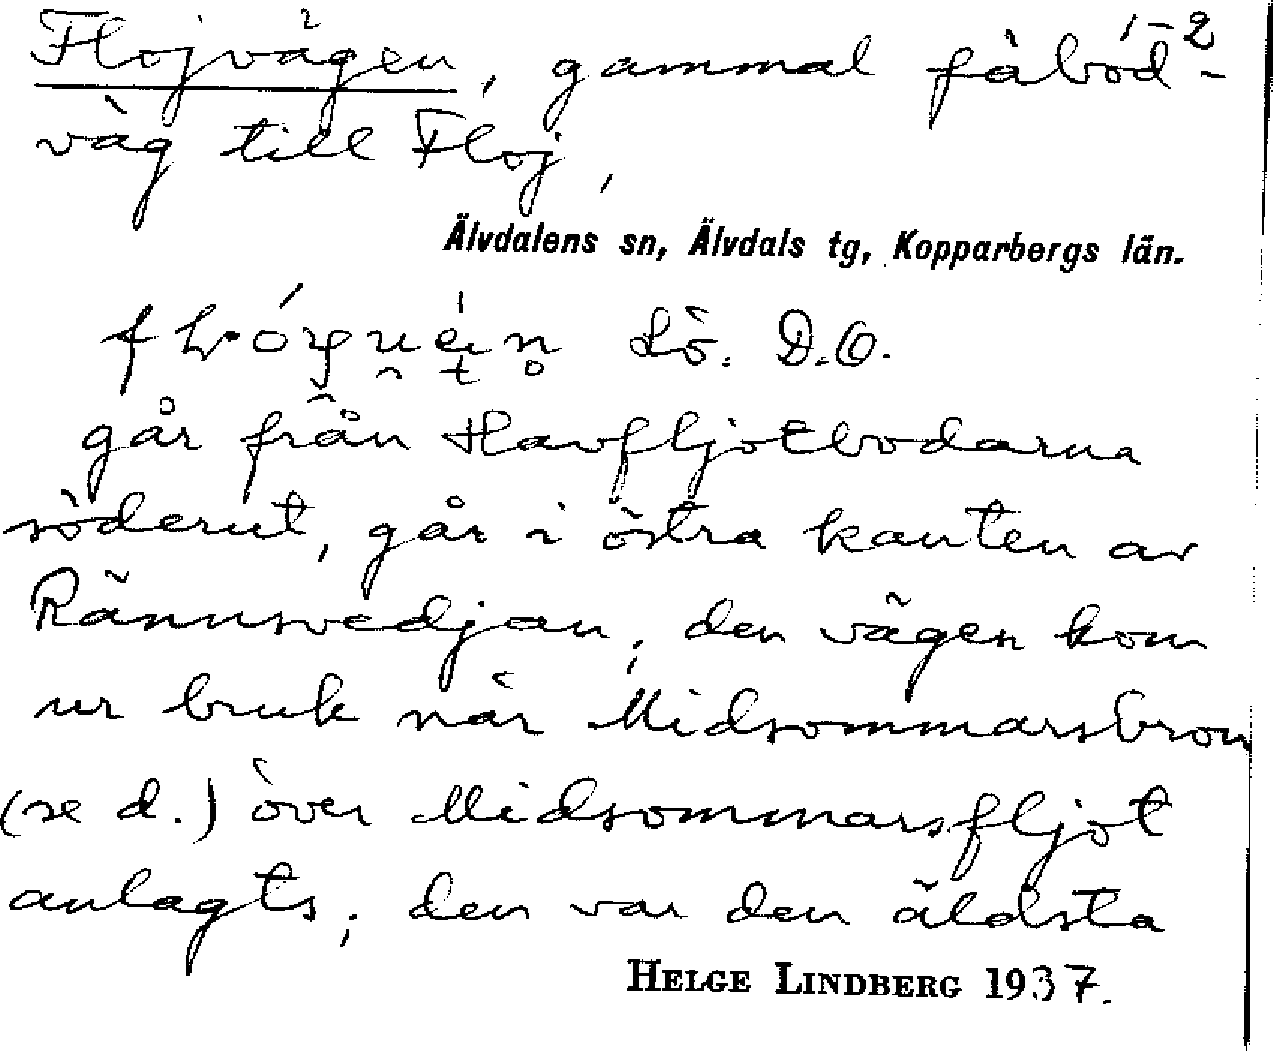 Flojvägen, gammal fäbod- 1-2
väg till Floj,
Älvdalens sn, Älvdals tg, Kopparbergs län.
Lö. D.O.
går från Havfljotbodarna
söderut, går i östra kanten av
Rännsvedjan, den vägen kom
ur bruk när Midsommarsbron
(se d.) över Midsommarsfljot
anlagts; den var den äldsta
HELGE LINDBERG 1937.